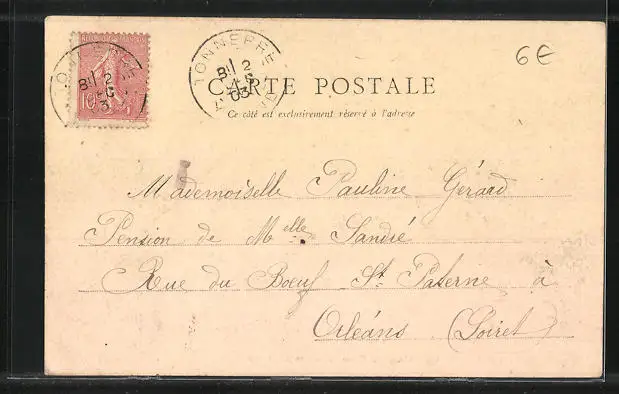 6€
10
TONNERRE
TONNERRE
CARTE POSTALE
Ce côté est exclusivement réservé à l'adresse
Mademoiselle Pauline Gérard
Pension de Melle Sandré
Rue du Bœuf St Paterne à
Orléans (Loiret)